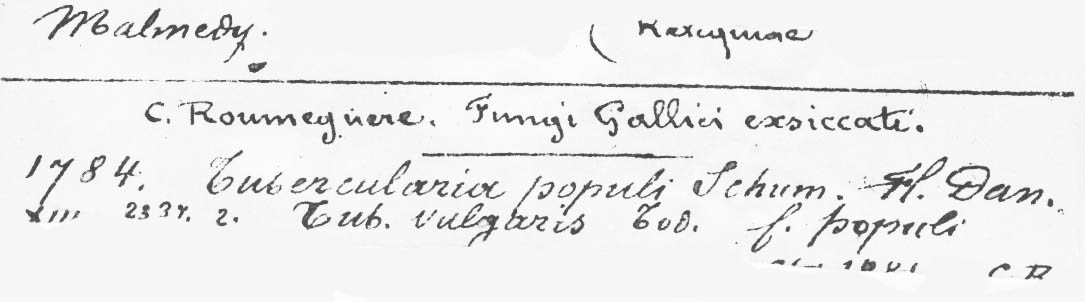 Malmedy.
C. Roumeguere. Fungi Gallici exsiccati.
1784. Tubercularia populi Schum. Fl. Dan.
2. Tub. vulgaris Tod. f. populi